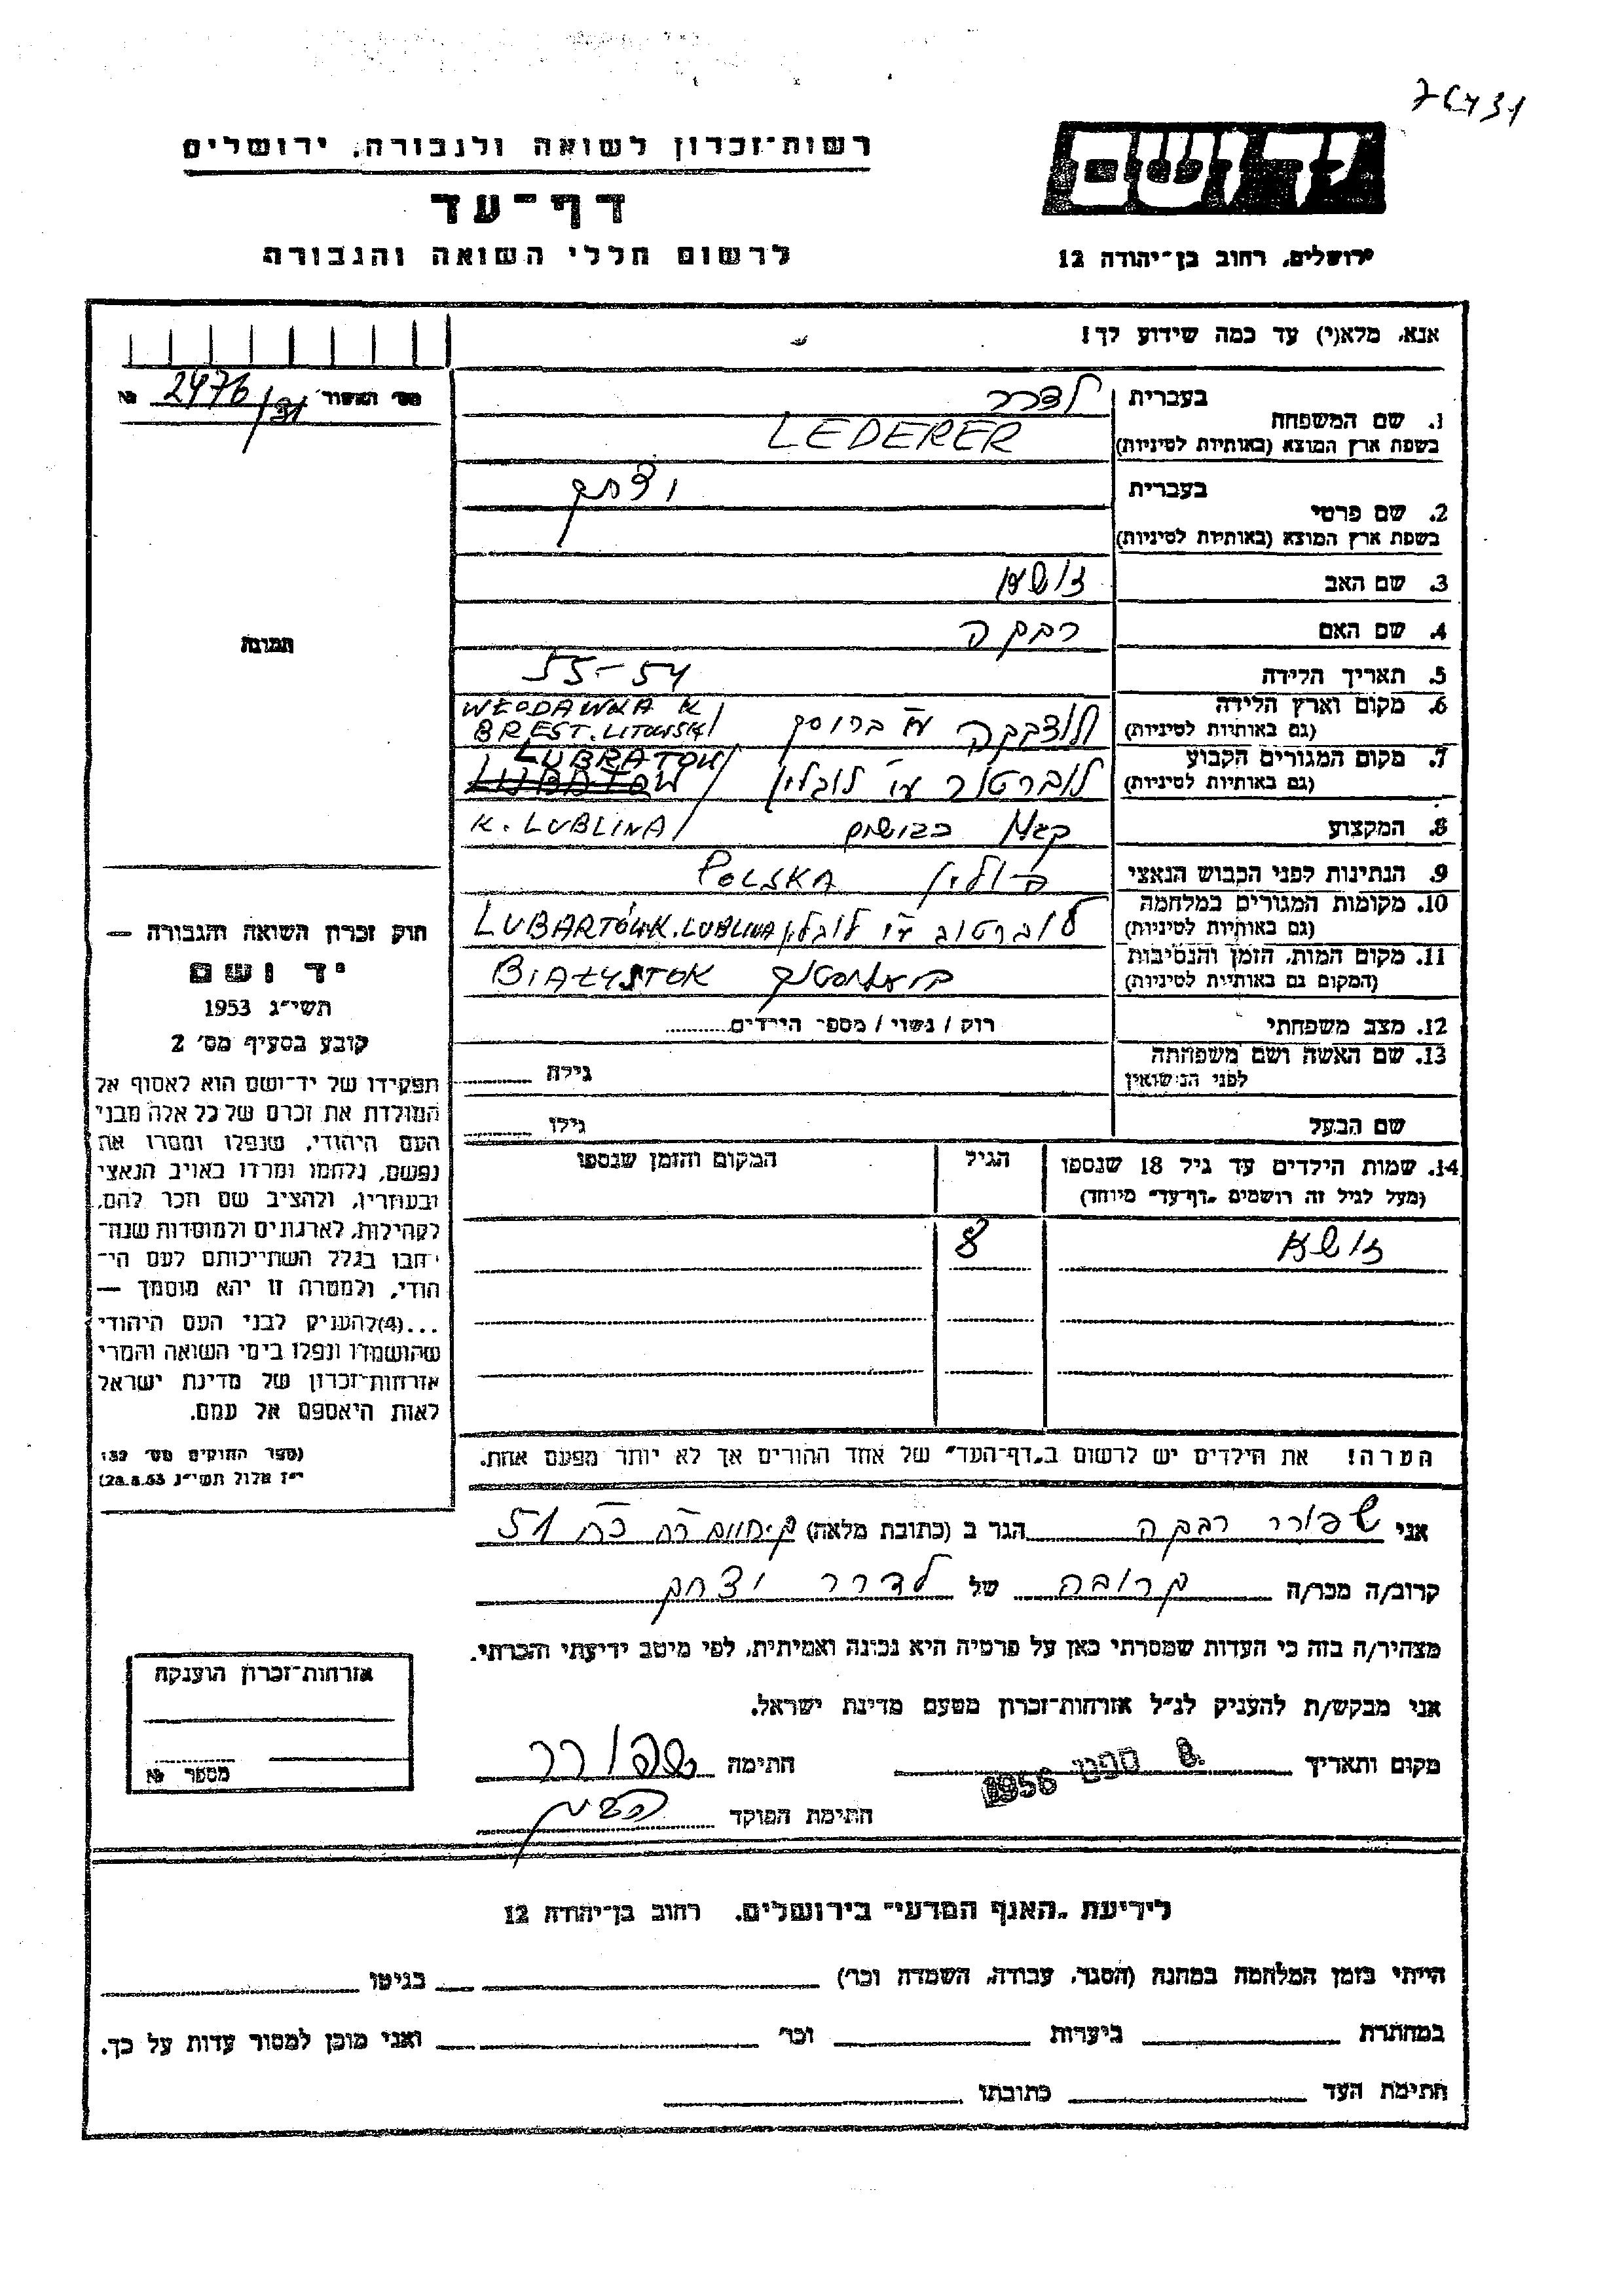 רשות־זכרון לשואה ולגבורה, ירושלים
דף־עד
לרשום חללי השואה והגבורה
יד ושם
ירושלים, רחוב בן־יהודה 12
אנא, מלא(י) עד כמה שידוע לך!
2476/31
1. שם המשפחה בעברית לדרר
בשפת ארץ המוצא (באותיות לטיניות) LEDERER
2. שם פרטי בעברית יצחק
בשפת ארץ המוצא (באותיות לטיניות)
3. שם האב
4. שם האם רבקה
5. תאריך הלידה 54-55
6. מקום וארץ הלידה (גם באותיות לטיניות) WŁODAWKA K BREST.LITOWSK
7. מקום המגורים הקבוע (גם באותיות לטיניות) לוברטוב ע״י לובלין LUBRATOW
K. LUBLINA
8. המקצוע
9. הנתינות לפני הכבוש הנאצי פולין POLSKA
10. מקומות המגורים במלחמה (גם באותיות לטיניות) לוברטוב ע״י לובלין LUBARTÓW K. LUBLINA
11. מקום המות, הזמן והנסיבות (המקום גם באותיות לטיניות) ביאליסטוק BIAŁYSTOK
12. מצב משפחתי רוק / נשוי / מספר הילדים
13. שם האשה ושם משפחתה לפני הנישואין גילה
שם הבעל גילו
14. שמות הילדים עד גיל 18 שנספו (מעל לגיל זה רושמים „דף־עד״ מיוחד) הגיל המקום והזמן שנספו
8
הערה! את הילדים יש לרשום ב„דף־העד״ של אחד ההורים אך לא יותר מפעם אחת.
תמונה
חוק זכרון השואה והגבורה —
יד ושם
תשי״ג 1953
קובע בסעיף מס׳ 2
תפקידו של יד־ושם הוא לאסוף אל
המולדת את זכרם של כל אלה מבני
העם היהודי, שנפלו ומסרו את
נפשם, נלחמו ומרדו באויב הנאצי
ובעוזריו, ולהציב שם וזכר להם,
לקהילות, לארגונים ולמוסדות שנח־
רבו בגלל השתייכותם לעם הי־
הודי, ולמטרה זו יהא מוסמך —
...(4) להעניק לבני העם היהודי
שהושמדו ונפלו בימי השואה והמרי
אזרחות־זכרון של מדינת ישראל
לאות היאספם אל עמם.
(ספר החוקים מס׳ 132
י״ז אלול תשי״ג 28.8.53)
אני רבקה הגר ב (כתובת מלאה) 51
קרוב/ה מכר/ה קרובה של לדרר יצחק
מצהיר/ה בזה כי העדות שמסרתי כאן על פרטיה היא נכונה ואמיתית, לפי מיטב ידיעתי והכרתי.
אני מבקש/ת להעניק לנ״ל אזרחות־זכרון מטעם מדינת ישראל.
מקום ותאריך 8. ספט 1956 חתימה
חתימת הפוקד
אזרחות־זכרון הוענקה
מספר №
לידיעת „האגף המדעי״ בירושלים, רחוב בן־יהודה 12
הייתי בזמן המלחמה במחנה (הסגר, עבודה, השמדה וכר׳) בגיטו
במחתרת ביערות וכר׳ ואני מוכן למסור עדות על כך.
חתימת העד כתובתו